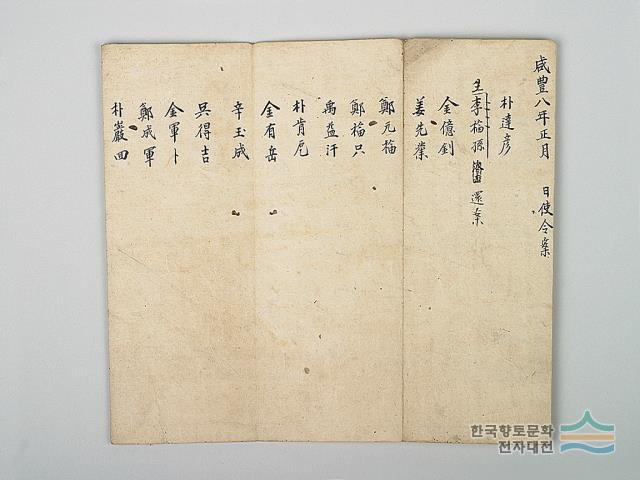 咸豊八年正月 日使令案
朴達彦
李梅孫 還案
金億釗
姜先業
鄭元梅
鄭梅只
禹益汗
朴肯
金有岳
辛玉成
吳得吉
金軍卜
鄭成軍
朴巖回
한국향토문화
전자대전